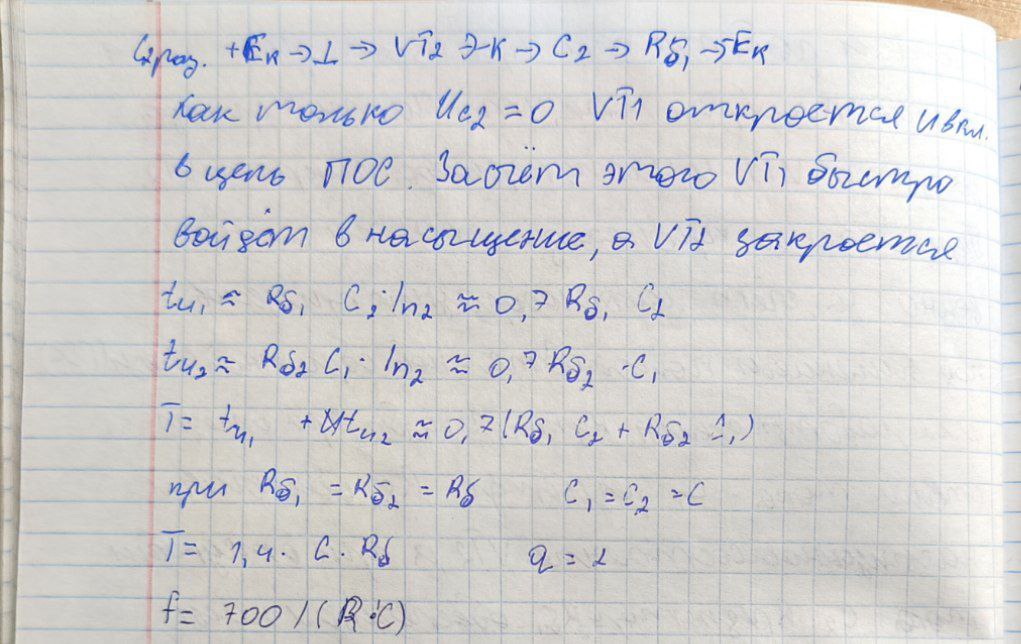 C₂ раз. +Eк → ⊥ → VT₂ Э-К → C₂ → Rб₁ → Eк
Как только Uc₂ = 0 VT1 откроется и вкл.
в цепь ПОС. Засчёт этого VT₁ быстро
войдёт в насыщение, а VT2 закроется
tи₁ ≈ Rб₁ C₂ · ln2 ≈ 0,7 Rб₁ C₂
tи₂ ≈ Rб₂ C₁ · ln2 ≈ 0,7 Rб₂ · C₁
T = tи₁ + tи₂ ≈ 0,7 (Rб₁ C₂ + Rб₂ 1,)
при Rб₁ = Rб₂ = Rб C₁ = C₂ = C
T = 1,4 · C · Rб q = 2
f = 700 / (R · C)